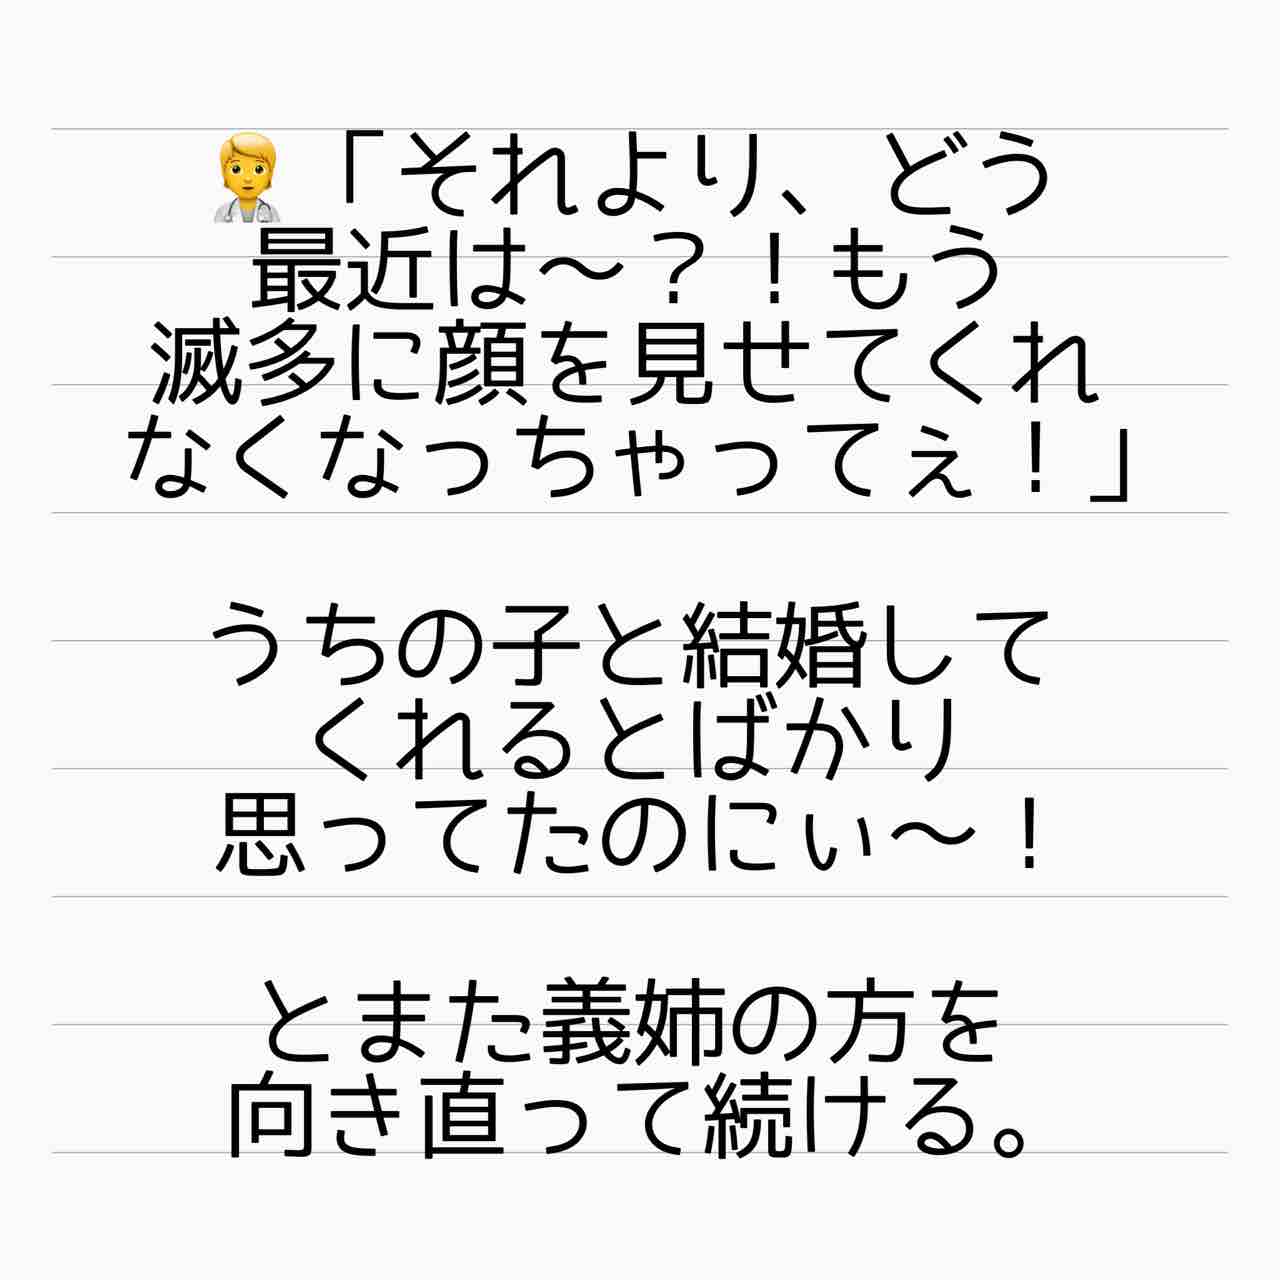 🧑‍⚕️「それより、どう
最近は〜？！もう
滅多に顔を見せてくれ
なくなっちゃってぇ！」
うちの子と結婚して
くれるとばかり
思ってたのにぃ〜！
とまた義姉の方を
向き直って続ける。